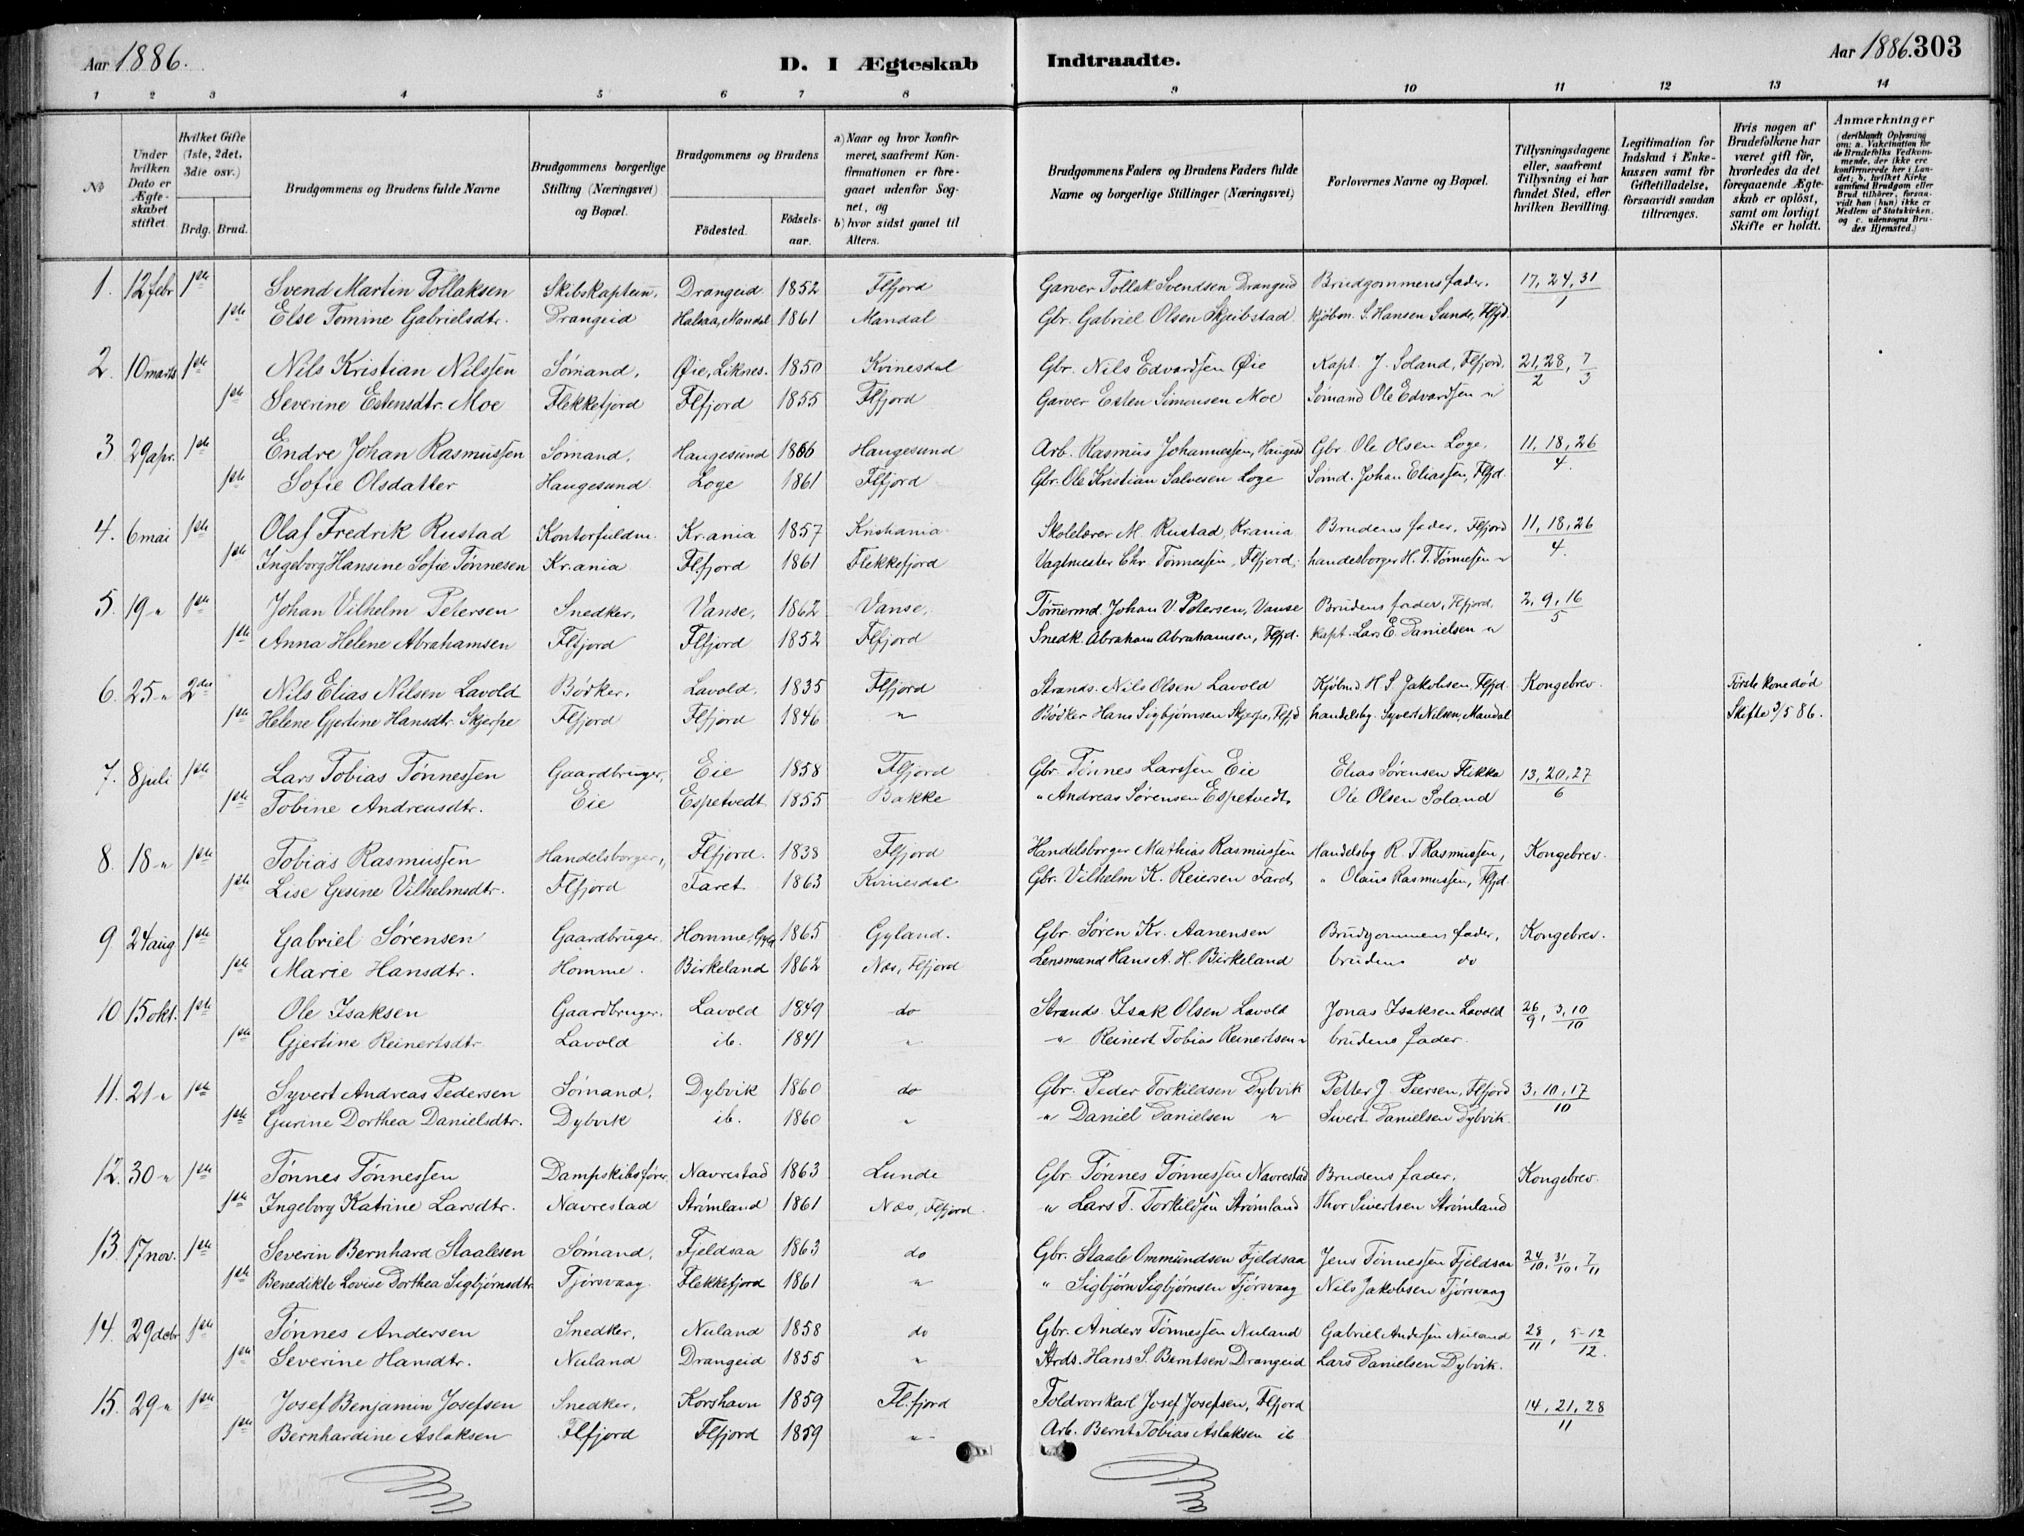 Aar 1886. D. I Ægteskab Indtraadte. Aar 1886. 303
1 2 3 4 5 6 7 8 9 10 11 12 13 14
№
Under hvilken Dato er Ægteskabet stiftet.
Hvilket Gifte (1ste, 2det, 3die osv.)
Brdg. Brud.
Brudgommens og Brudens fulde Navne
Brudgommens borgerlige Stilling (Næringsvei) og Bopæl.
Brudgommens og Brudens
Födested. Födsels-aar.
a) Naar og hvor konfirmeret, saafremt Konfirmationen er foregaaet udenfor Sognet, og
b) hvor sidst gaaet til Alters.
Brudgommens Faders og Brudens Faders fulde Navne og borgerlige Stillinger (Næringsvei)
Forlovernes Navne og Bopæl.
Tillysningsdagene eller, saafremt Tillysning ei har fundet Sted, efter hvilken Bevilling.
Legitimation for Indskud i Enkekassen samt for Giftetilladelse, forsaavidt saadan tiltrænges.
Hvis nogen af Brudefolkene har været gift för, hvorledes da det foregaaende Ægteskab er oplöst, samt om lovligt Skifte er holdt.
Anmærkninger (deriblandt Oplysning om: a. Vakcination for de Brudefolks Vedkommende, der ikke ere konfirmerede her i Landet; b. hvilket Kirkesamfund Brudgom eller Brud tilhörer, forsaavidt han (hun) ikke er Medlem af Statskirken, og c. udensogns Brudes Hjemsted.)
1. 12 febr 1ste Svend Martin Tollaksen Skibskaptein, Drangeid 1852 Flfjord Garver Tollak Svendsen Drangeid Brudgommens fader. 17, 24, 31/1
1ste Else Tomine Gabrielsdtr. Drangeid Halsaa, Mandal 1861 Mandal Gbr. Gabriel Olsen Skjeibstad kjöbm. S. Hansen Sunde, Flfjd.
2. 10 marts 1ste Nils Kristian Nilssen Sömand, Øie, Liknes. 1850 Kvinesdal Gbr. Nils Edvardsen Øie Kapt. J. Soland, Flfjord, 21, 28/2, 7/3
1ste Severine Estensdtr. Moe Flekkefjord Flfjord 1855 Flfjord Garver Esten Simonsen Moe Sömand Ole Edvardsen "
3 29 apr. 1ste Endre Johan Rasmussen Sømand, Haugesund 1866 Haugesund Arb. Rasmus Johannessen, Haugesd Gbr. Ole Olsen Loge. 11, 18, 26/4.
1ste Sofie Olsdatter Haugesund Loge 1861 Flfjord Gbr. Ole Kristian Salvesen Loge Sömd. Johan Eliassen, Flfjd.
4. 6 mai 1ste Olaf Fredrik Rustad Kontorfuldm. Kr.ania 1857 Kristiania Skolelærer M. Rustad, Kr.ania Brudens fader, Flfjord 11, 18, 26/4.
1ste Ingeborg Hansine Sofie Tönnesen Kr.ania Flfjord 1861 Flekkefjord Vagtmester Chr. Tönnessen, Flfjord, handelsborger H. T. Tönnesen "
5. 19 " 1ste Johan Vilhelm Petersen Snedker, Vanse, 1862 Vanse, Tömermd. Johan V. Petersen, Vanse Brudens fader, Flfjord, 2, 9, 16/5
1ste Anna Helene Abrahamsen Flfjord Flfjord 1852 Flfjord Snedk. Abraham Abrahamsen, Flfjd. kapt. Lars E. Danielsen "
6. 25 " 2det Nils Elias Nilsen Lavold Bödker, Lavold, 1835 Flfjord Strands. Nils Olsen Lavold Kjöbmd. H S. Jakobsen, Flfjd. Kongebrev. Förste kone död
1ste Helene Gjertine Hansdtr. Skjerpe Flfjord Flfjord 1846 " Bödker Hans Sigbjørnsen Skjerpe, Flfjd handelsbg. Syvert Nilsen, Mandal Skifte /5 86.
7. 8 juli 1ste Lars Tobias Tönnessen Gaardbruger, Eie 1858 Flfjord Gbr. Tönnes Larssen Eie Elias Sørensen Flikka 13, 20, 27/6
1ste Tobine Andreasdtr. Eie Espetvedt 1855 Bakke " Andreas Sørensen Espetvedt, Ole Olsen Soland
8. 18 " 1ste Tobias Rasmussen Handelsborger, Flfjord. 1838 Flfjord Handelsborger Mathias Rasmussen Handelsbg R. T Rasmussen, Kongebrev.
1ste Lise Gesine Vilhelmsdtr. Flfjord Faret 1863 Kvinesdal Gbr. Vilhelm K. Reiersen Faret, " Olaus Rasmussen, Flfjd.
9 24 aug 1ste Gabriel Sørensen Gaardbruger, Homme, Gyld 1865 Gyland. Gbr. Søren Kr. Aanensen Brudgommens fader, Kongebrev.
1ste Marie Hansdtr. Homme. Birkeland 1862 Nes, Flfjord Lensmand Hans A. H. Birkeland brudens do
10 15 okt. 1ste Ole Isaksen Gaardbruger. Lavold 1849 do Strands. Isak Olsen Lavold Jonas Isaksen Lavold 26/9, 3, 10/10
1ste Gjertine Reinertsdtr. Lavold ib. 1841 " " Reinert Tobias Reinertsen " brudens fader.
11. 21 " 1ste Syvert Andreas Pedersen Sömand, Dybvik 1860 do Gbr. Peder Torkildsen Dybvik Petter J. Peersen, Flfjord 3, 10, 17/10
1ste Gurine Dorthea Danielsdtr. Dybvik ib. 1860 " " Daniel Danielsen " Sivert Danielsen Dybvik.
12. 30 " 1ste Tönnes Tönnessen Dampskibsförer, Navrestad 1863 Lunde Gbr. Tönnes Tönnessen Navrestad Brudens fader. Kongebrev.
1ste Ingeborg Katrine Larsdtr. Navrestad Strömland 1861 Nes, Flfjord. " Lars T. Torkildsen Strömland Thor Sivertsen Strömland
13. 17 nov. 1ste Severin Bernhard Staalesen Sömand, Fjeldsaa 1863 do Gbr. Staale Ommundsen Fjeldsaa Jens Tönnessen Fjeldsaa 24/10, 31/10, 7/11
1ste Benedikte Lovise Dorthea Sigbjørnsdtr Tjörsvaag. Flekkefjord 1861 " " Sigbjørn Sigbjørnsen Tjörsvaag Nils Jakobsen Tjörsvaag
14. 29 decbr 1ste Tönnes Andersen Snedker, Nuland 1858 do Gbr. Anders Tönnessen Nuland Gabriel Andersen Nuland 28/11, 5-12/12.
1ste Severine Hansdtr. Nuland Drangeid 1855 " Strds. Hans S. Berntsen Drangeid Lars Danielsen Dybvik.
15. 29 " 1ste Josef Benjamin Josefsen Snedker, Korshavn 1859 Fl.fjord Toldrorskarl Josef Josefsen, Flfjord 14, 21, 28/11
1ste Bernhardine Aslaksen Flfjord Flfjord 1859 " Arb. Bernt Tobias Aslaksen ib